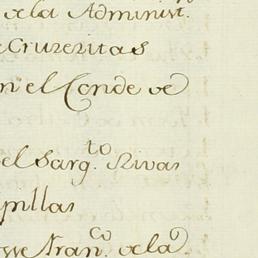 dela Administ.
Cruzeritas
n el Conde de
el Sarg.to Rivas
pillas
Fran.co dela